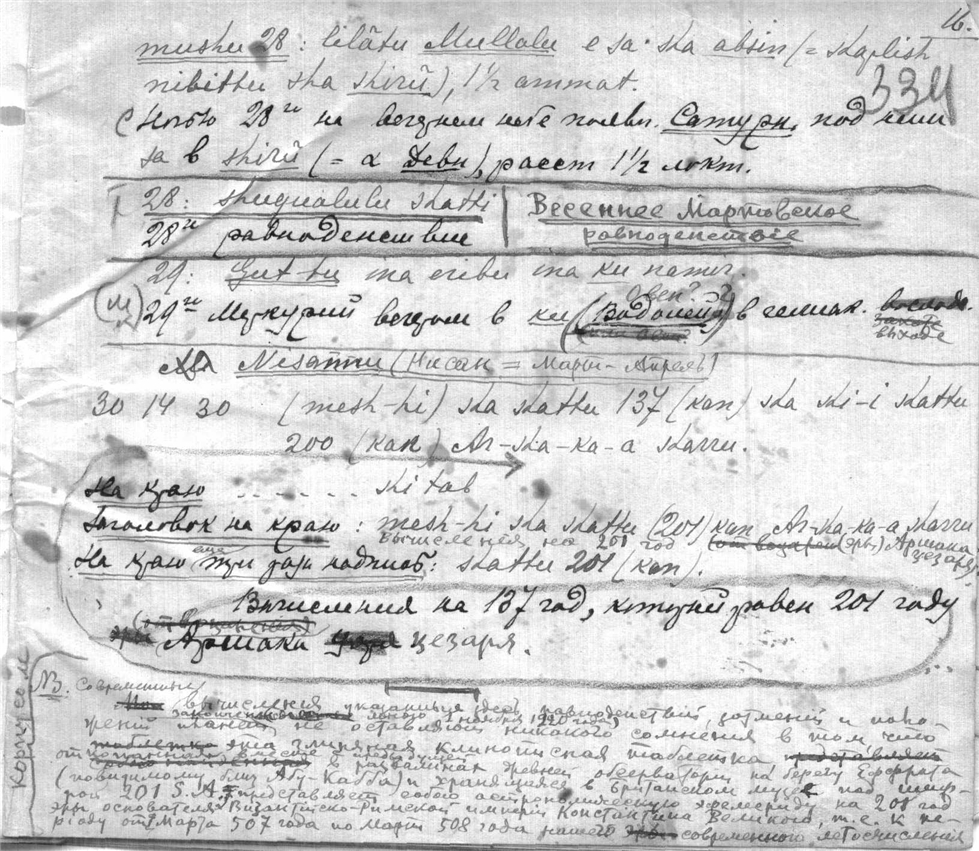 16.
334
mushu 28: lilâtu Mullalu e sa ska absin (= skaplish
nibittu ska shirû), 1½ ammat.
(Ночью 28го на вечернем небе появи. Сатурн, под ним
sa в shirû (= α Девы), расст 1½ локт.
28: shuqualulu skatti | Весеннее Мартовское
28го равноденствие | равноденствие
29: Gut-tu ina eribu ina ku namir.
Овен? ?
29го Меркурий вечером в ku (Водолей) в гелиак.
заходе
выходе
Nisannu (Нисан = Март-Апрель)
30 14 30 (mesh-hi) ska skattu 137 (kan) ska ski-i skattu
200 (kan) Ar-ska-ka-a skarru.
На краю . . . . . . ski tab
Заголовок на краю: mesh-hi ska skattu (201) kan Ar-ska-ka-a skarru
вычисления на 201 год (эры) Аршака цезаря
На краю еще три раза надпись: skattu 201 (kan).
Вычисления на 137 год, который равен 201 году
Аршаки цезаря.
корпусом
NB: Современные
вычисления указанных здесь равноденствий, затмений и
законченные мною 1 ноября 1920 года
не оставляют никакого сомнения в том что
эта глиняная клинописная таблетка
в развалинах древней обсерватории на берегу Евфрата
(повидимому близ Абу-Кабба) и хранящаяся в Британском музее под
201 S.A. представляет собой астрономическую эфемериду на 201 год
эры основателя Византийско-Римской империи Константина Великого, т.е. к пе-
риоду от Марта 507 года по Март 508 года нашего современного летосчисления